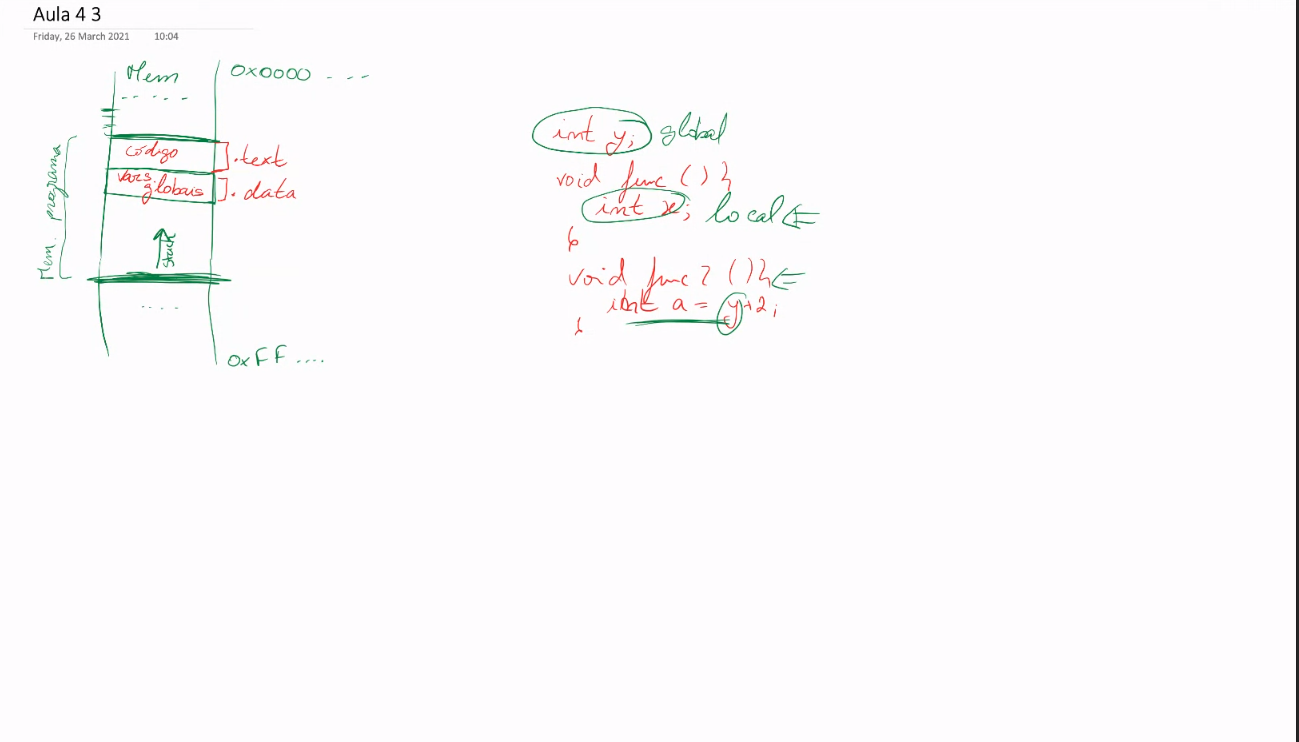 Aula 4 3
Friday, 26 March 2021 10:04
Mem
0x0000 - - -
- - - - -
Mem. programa
código
.text
vars. globais
.data
stack
....
0xFF ....
int y; global
void func () {
int x; local
}
void func2 () {
int a = y+2;
}